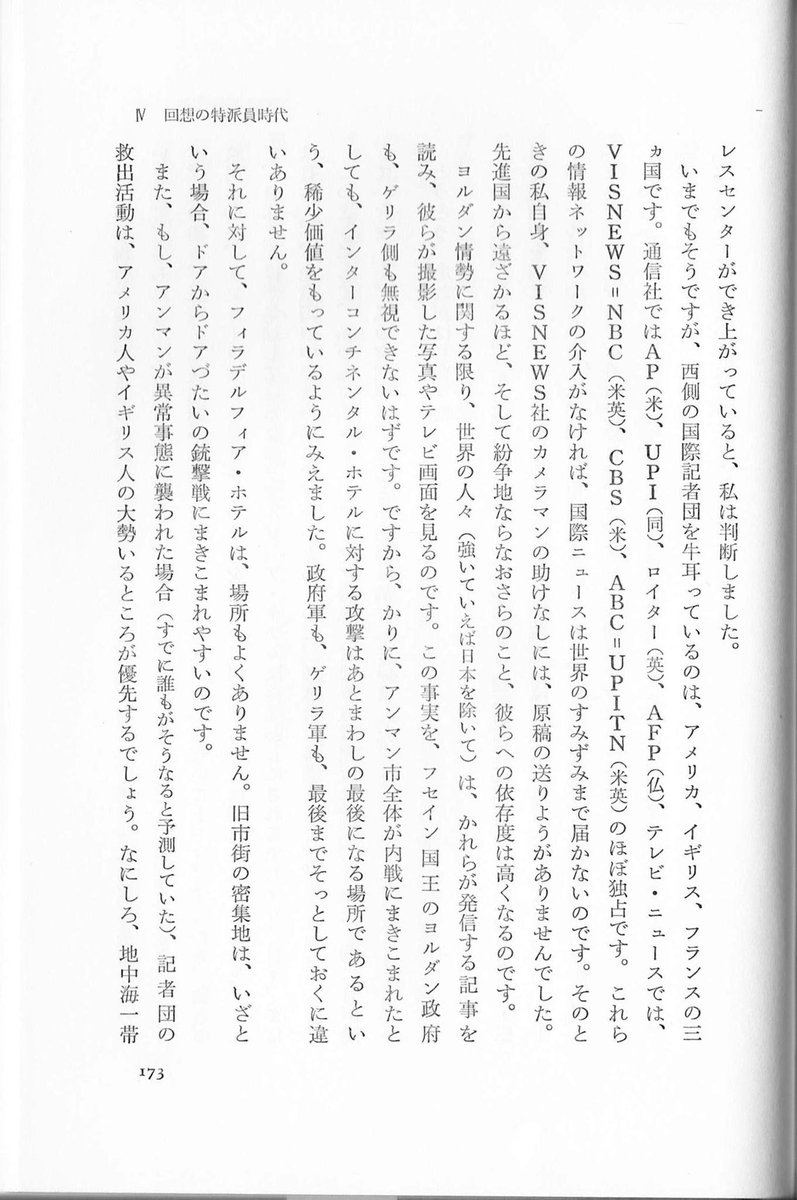 Ⅳ 回想の特派員時代
レスセンターができ上がっていると、私は判断しました。
いまでもそうですが、西側の国際記者団を牛耳っているのは、アメリカ、イギリス、フランスの三
ヵ国です。通信社ではAP（米）、UPI（同）、ロイター（英）、AFP（仏）、テレビ・ニュースでは、
VISNEWS＝NBC（米英）、CBS（米）、ABC＝UPITN（米英）のほぼ独占です。これら
の情報ネットワークの介入がなければ、国際ニュースは世界のすみずみまで届かないのです。そのと
きの私自身、VISNEWS社のカメラマンの助けなしには、原稿の送りようがありませんでした。
先進国から遠ざかるほど、そして紛争地ならなおさらのこと、彼らへの依存度は高くなるのです。
ヨルダン情勢に関する限り、世界の人々（強いていえば日本を除いて）は、かれらが発信する記事を
読み、彼らが撮影した写真やテレビ画面を見るのです。この事実を、フセイン国王のヨルダン政府
も、ゲリラ側も無視できないはずです。ですから、かりに、アンマン市全体が内戦にまきこまれたと
しても、インターコンチネンタル・ホテルに対する攻撃はあとまわしの最後になる場所であるとい
う、稀少価値をもっているようにみえました。政府軍も、ゲリラ軍も、最後までそっとしておくに違
いありません。
それに対して、フィラデルフィア・ホテルは、場所もよくありません。旧市街の密集地は、いざと
いう場合、ドアからドアづたいの銃撃戦にまきこまれやすいのです。
また、もし、アンマンが異常事態に襲われた場合（すでに誰もがそうなると予測していた）、記者団の
救出活動は、アメリカ人やイギリス人の大勢いるところが優先するでしょう。なにしろ、地中海一帯
173